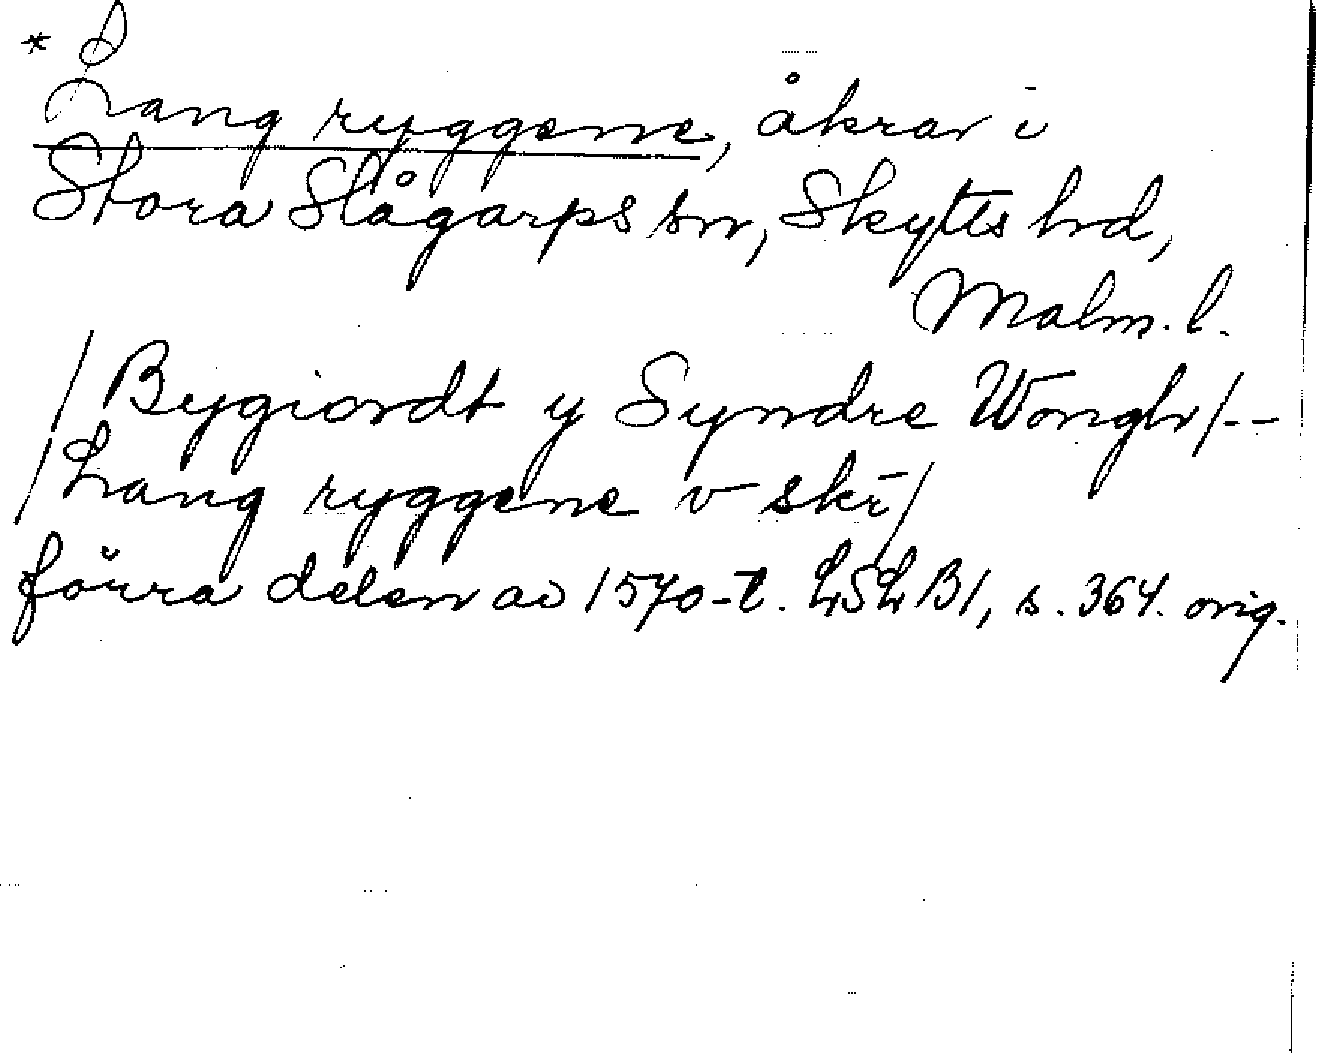 * Lang ryggene, åkrar i
Stora Slågarps sn, Skytts hd,
Malm. l.
/Bygiordt y Syndre Wongh/--
/Lang ryggene v skī/
förra delen av 1570-t. LSLB1, s. 364. orig.